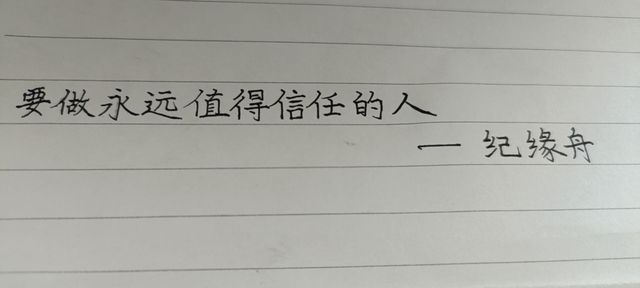 要做永远值得信任的人
— 纪缘舟